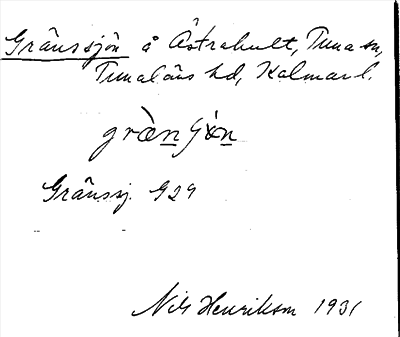 Gränssjön å Åstrahult, Tuna sn,
Tunaläns hd, Kalmar l.
grænʃön
Gränssj. G29
Nils Henrikson 1931